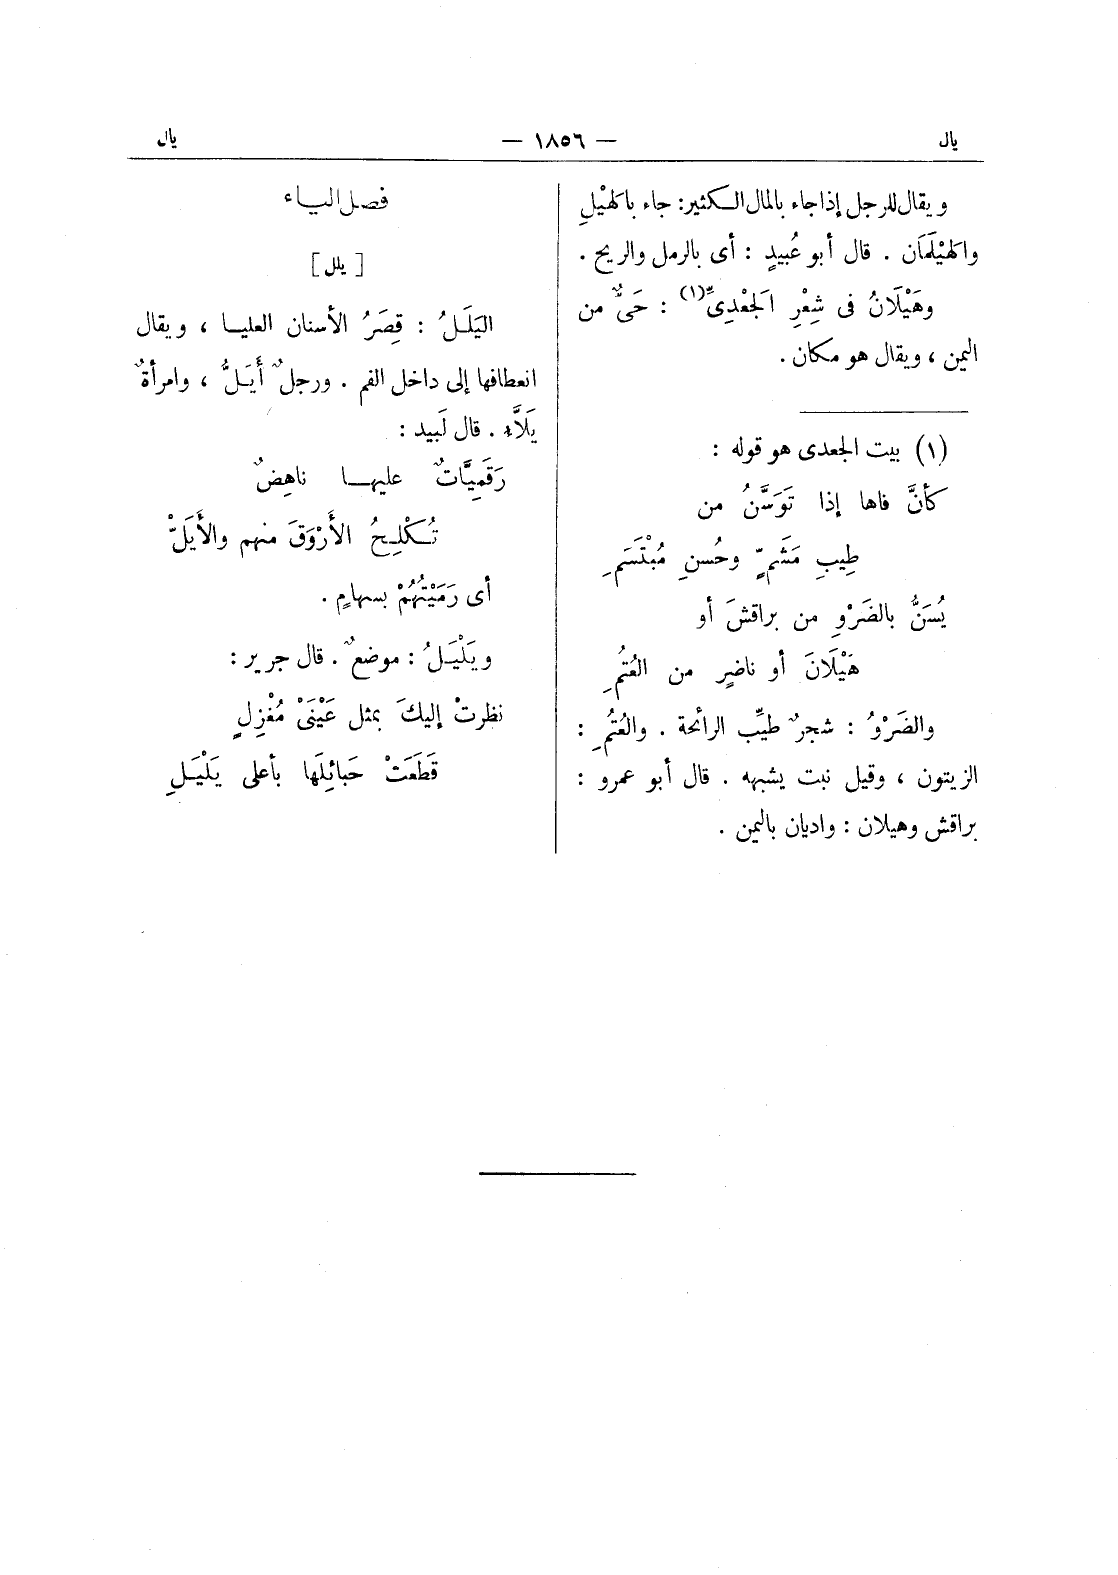 يال — ١٨٥٦ — يال
ويقال للرجل إذا جاء بالمال الكثير: جاء بالهَيْلِ
والهَيْلَمَان . قال أبو عُبيدٍ : أى بالرمل والريح .
وهَيْلَانُ فى شِعْرِ الجَعْدِىِّ(١) : حَىٌّ من
اليمن ، ويقال هو مكان .
(١) بيت الجعدى هو قوله :
كأنَّ فاها إذا تَوَسَّنُ من
طِيبِ مَشَمٍّ وحُسنِ مُبْتَسَمِ
يُسَنُّ بالضَرْوِ من براقشَ أو
هَيْلَانَ أو ناضرٍ من العُتُمِ
والضَرْوُ : شجرٌ طيِّب الرائحة . والعُتُمِ :
الزيتون ، وقيل نبت يشبهه . قال أبو عمرو :
براقش وهيلان : واديان باليمن .
فصل الياء
[ يلل ]
اليَلَلُ : قِصَرُ الأسنان العليا ، ويقال
انعطافها إلى داخل الفم . ورجلٌ أَيَلُّ ، وامرأةٌ
يَلاَّء . قال لَبيد :
رَقَمِيَّاتٌ عليها ناهِضٌ
تُكْلِحُ الأَرْوَقَ منهم والأَيَلّْ
أى رَمَيْتُهُمْ بسهامٍ .
ويَلْيَلُ : موضعٌ . قال جرير :
نظرتْ إليكَ بمثل عَيْنَىْ مُغْزِلٍ
قَطَعَتْ حَبائِلَها بأعلى يَلْيَلِ